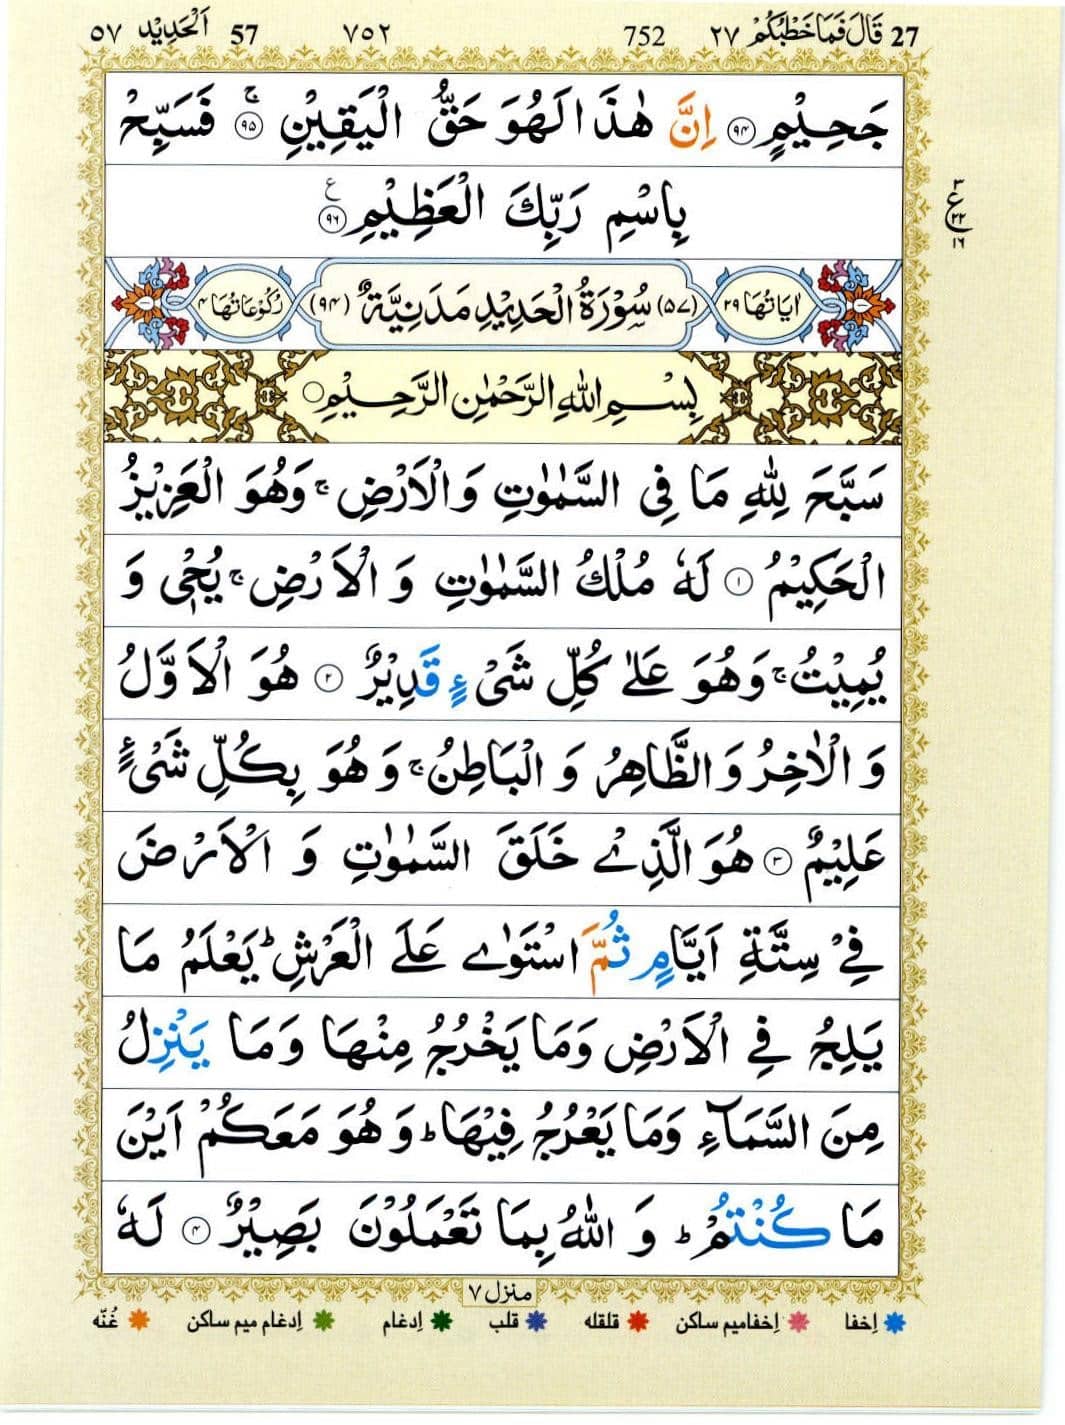 27 قَالَ فَمَا خَطْبُكُمْ ٢٧ 752 ٧٥٢ 57 اَلْحَدِيْد ٥٧
جَحِيْمٍ ۝٩٤ اِنَّ هٰذَا لَهُوَ حَقُّ الْيَقِيْنِ ۚ۝٩٥ فَسَبِّحْ
بِاسْمِ رَبِّكَ الْعَظِيْمِ ۝٩٦ ع
٣ ع ٢٢ ١٦
اٰيَاتُهَا ٢٩ (٥٧) سُوْرَةُ الْحَدِيْدِ مَدَنِيَّةٌ (٩٤) رُكُوْعَاتُهَا ٤
بِسْمِ اللّٰهِ الرَّحْمٰنِ الرَّحِيْمِ
سَبَّحَ لِلّٰهِ مَا فِى السَّمٰوٰتِ وَالْاَرْضِ ۚ وَهُوَ الْعَزِيْزُ
الْحَكِيْمُ ۝١ لَهٗ مُلْكُ السَّمٰوٰتِ وَ الْاَرْضِ ۚ يُحْيٖ وَ
يُمِيْتُ ۚ وَهُوَ عَلٰى كُلِّ شَىْءٍ قَدِيْرٌ ۝٢ هُوَ الْاَوَّلُ
وَ الْاٰخِرُ وَ الظَّاهِرُ وَ الْبَاطِنُ ۚ وَ هُوَ بِكُلِّ شَىْءٍ
عَلِيْمٌ ۝٣ هُوَ الَّذِىْ خَلَقَ السَّمٰوٰتِ وَ الْاَرْضَ
فِىْ سِتَّةِ اَيَّامٍ ثُمَّ اسْتَوٰى عَلَى الْعَرْشِ ؕ يَعْلَمُ مَا
يَلِجُ فِى الْاَرْضِ وَمَا يَخْرُجُ مِنْهَا وَمَا يَنْزِلُ
مِنَ السَّمَآءِ وَمَا يَعْرُجُ فِيْهَا ؕ وَ هُوَ مَعَكُمْ اَيْنَ
مَا كُنْتُمْ ؕ وَ اللّٰهُ بِمَا تَعْمَلُوْنَ بَصِيْرٌ ۝٤ لَهٗ
منزل ٧
اِخفا اِخفامیم ساکن قلقله قلب اِدغام اِدغام میم ساکن غُنّه